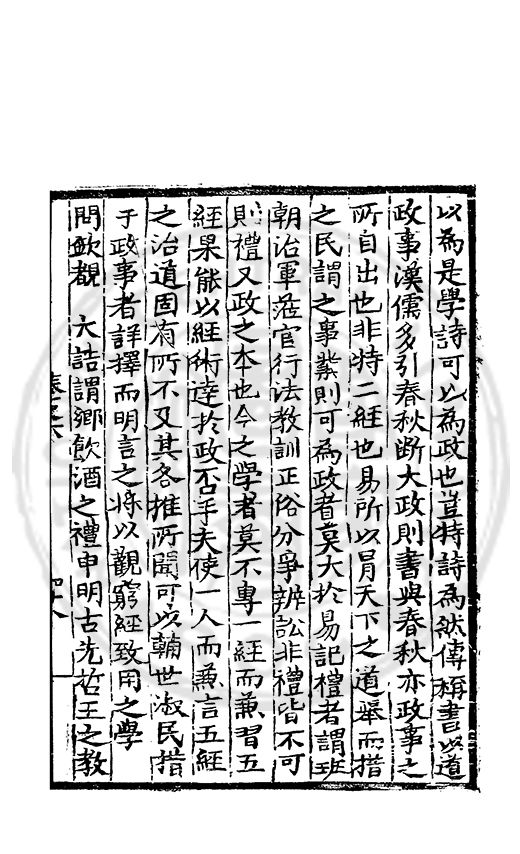 以為是學詩可以為政也豈特詩為然傳稱書以道
政事漢儒多引春秋断大政則書與春秋亦政事之
所自出也非特二經也易所以冐天下之道舉而措
之民謂之事業則可為政者莫大扵易記禮者謂班
朝治軍涖官行法教訓正俗分爭辨訟非禮皆不可
則禮又政之本也今之學者莫不專一經而兼習五
經果能以經術達扵政否乎夫使一人而兼言五經
之治道固有所不及其各推所聞可以輔世淑民措
于政事者詳擇而明言之将以觀窮經致用之學
問歟觀 大誥謂鄉飲酒之禮申明古先哲王之教